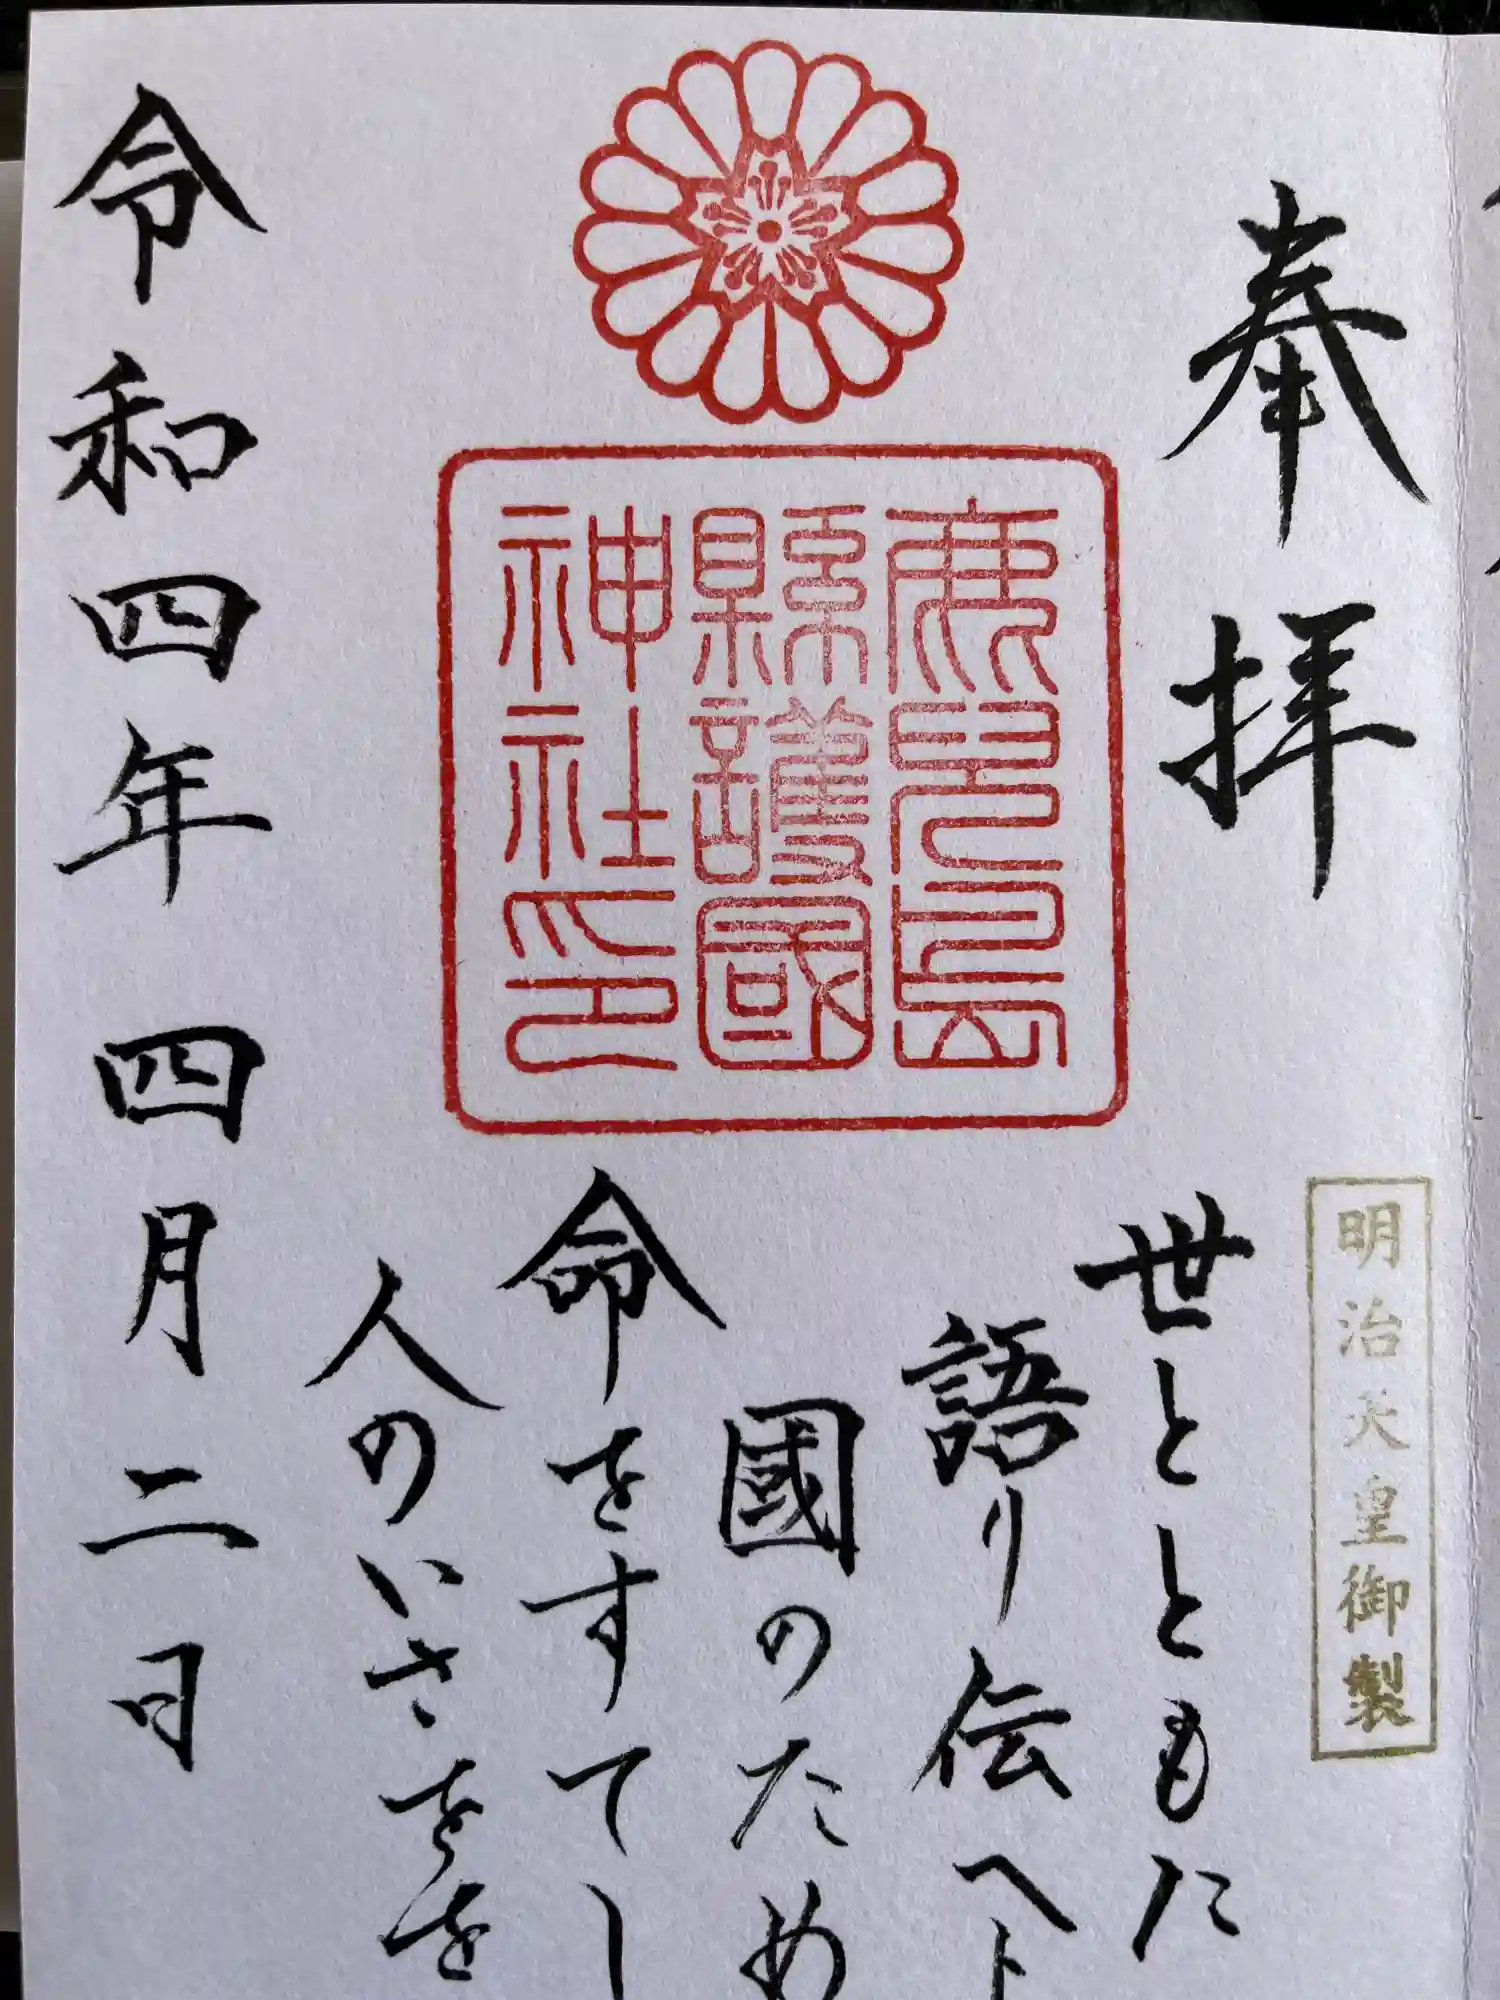 奉拝
鹿児島
縣護國
神社印
明治天皇御製
世とともに
語り伝へよ
國のため
命をすてし
人のいさをを
令和四年四月二日